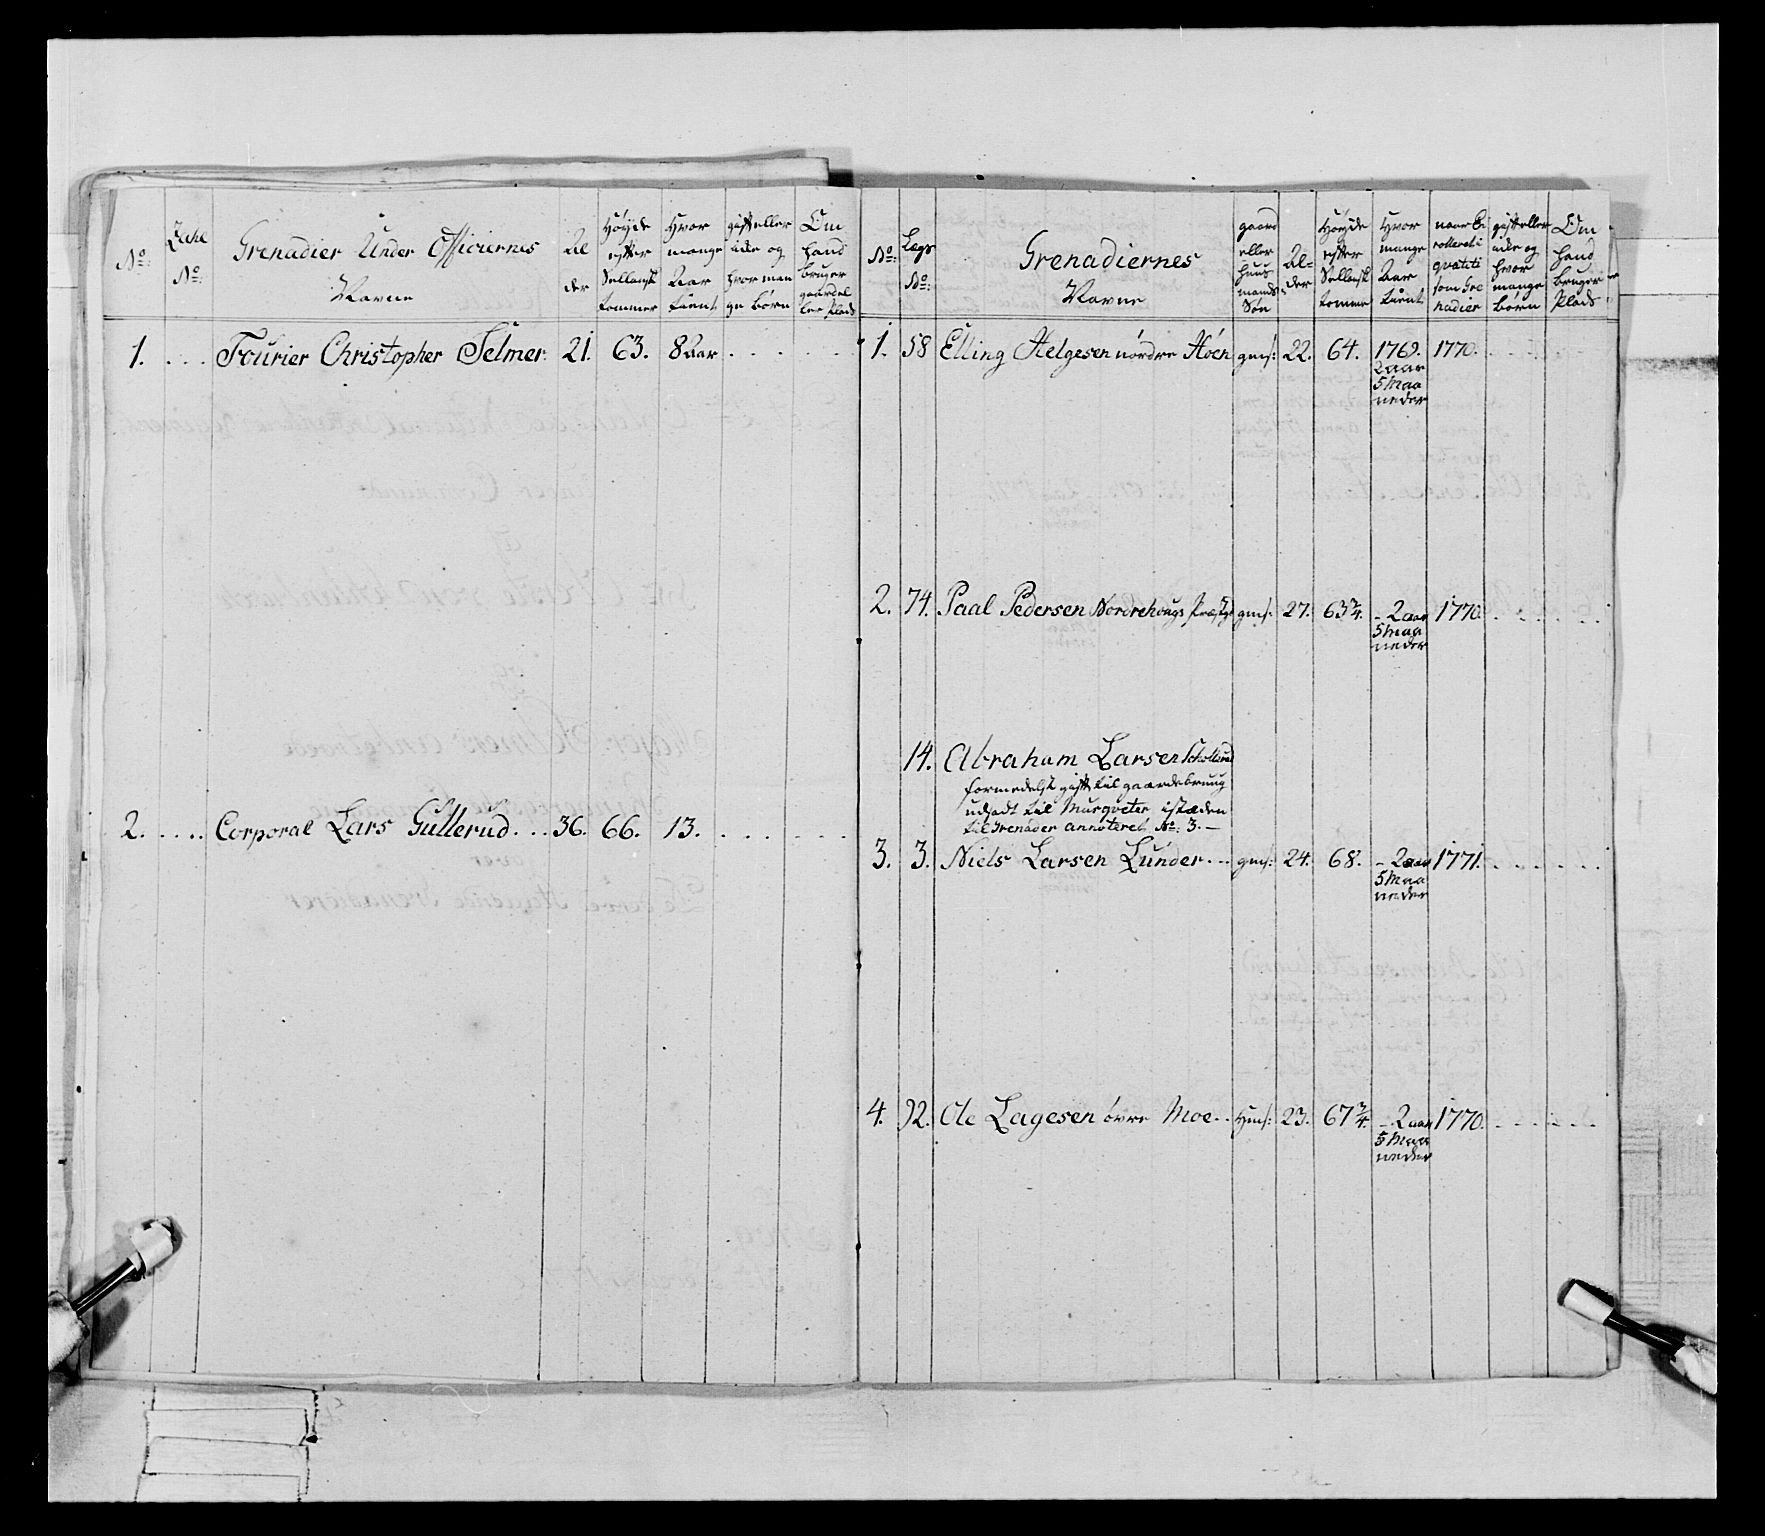 No:
Tahl No:
Grenadier Under Officiernes
Navne
Al
der
Høyde
efter
Sellansk
tommer
Hvor
mange
Aar
tient
gift eller
icke og
hvor man
ge Børn
Om
hand
bruger
gaard el
ler Plads
1. . . . Fourier Christopher Selmer. 21. 63. 8 Aar . . . . . .
2. . . . . Corporal Lars Gullerud. . . 36. 66. 13. . . . . . . .
No:
Lægs
No:
Grenadiernes
Navne
gaard
eller
huus
mands
Søn
Al=
der
Høyde
efter
Sellansk
tomme
Hvor
mange
Aar
tient
naar En
rolleret i
qvatiti
som Gre
nadier
gift eller
icke og
hvor
mange
Børn
Om
hand
bruger
Plads
1. 58 Elling Helgesen nordre Hoen gms: 22. 64. 1769. 1770. . . . .
2 aar
5 Maa
neder
2. 74. Paal Pedersen Nordrehougs Præstg: gms: 27. 63 3/4. - 2 aar 1770. . . . . .
5 Maa
neder
14. Abraham Larsen Schollerud
formedelst gift til gaardebruug
udsadt til Musqveter, istæden
til Grenader annoteret No: 3. —
3. 3. Niels Larsen Lunder . . . gms: 24. 68. - 2 aar 1771. . . . . .
5 Maa
neder
4. 92. Ole Lagesen øvre Moe. . Hms: 23. 67 3/4. - 2 aar 1770. . . . . .
5 Maa
neder